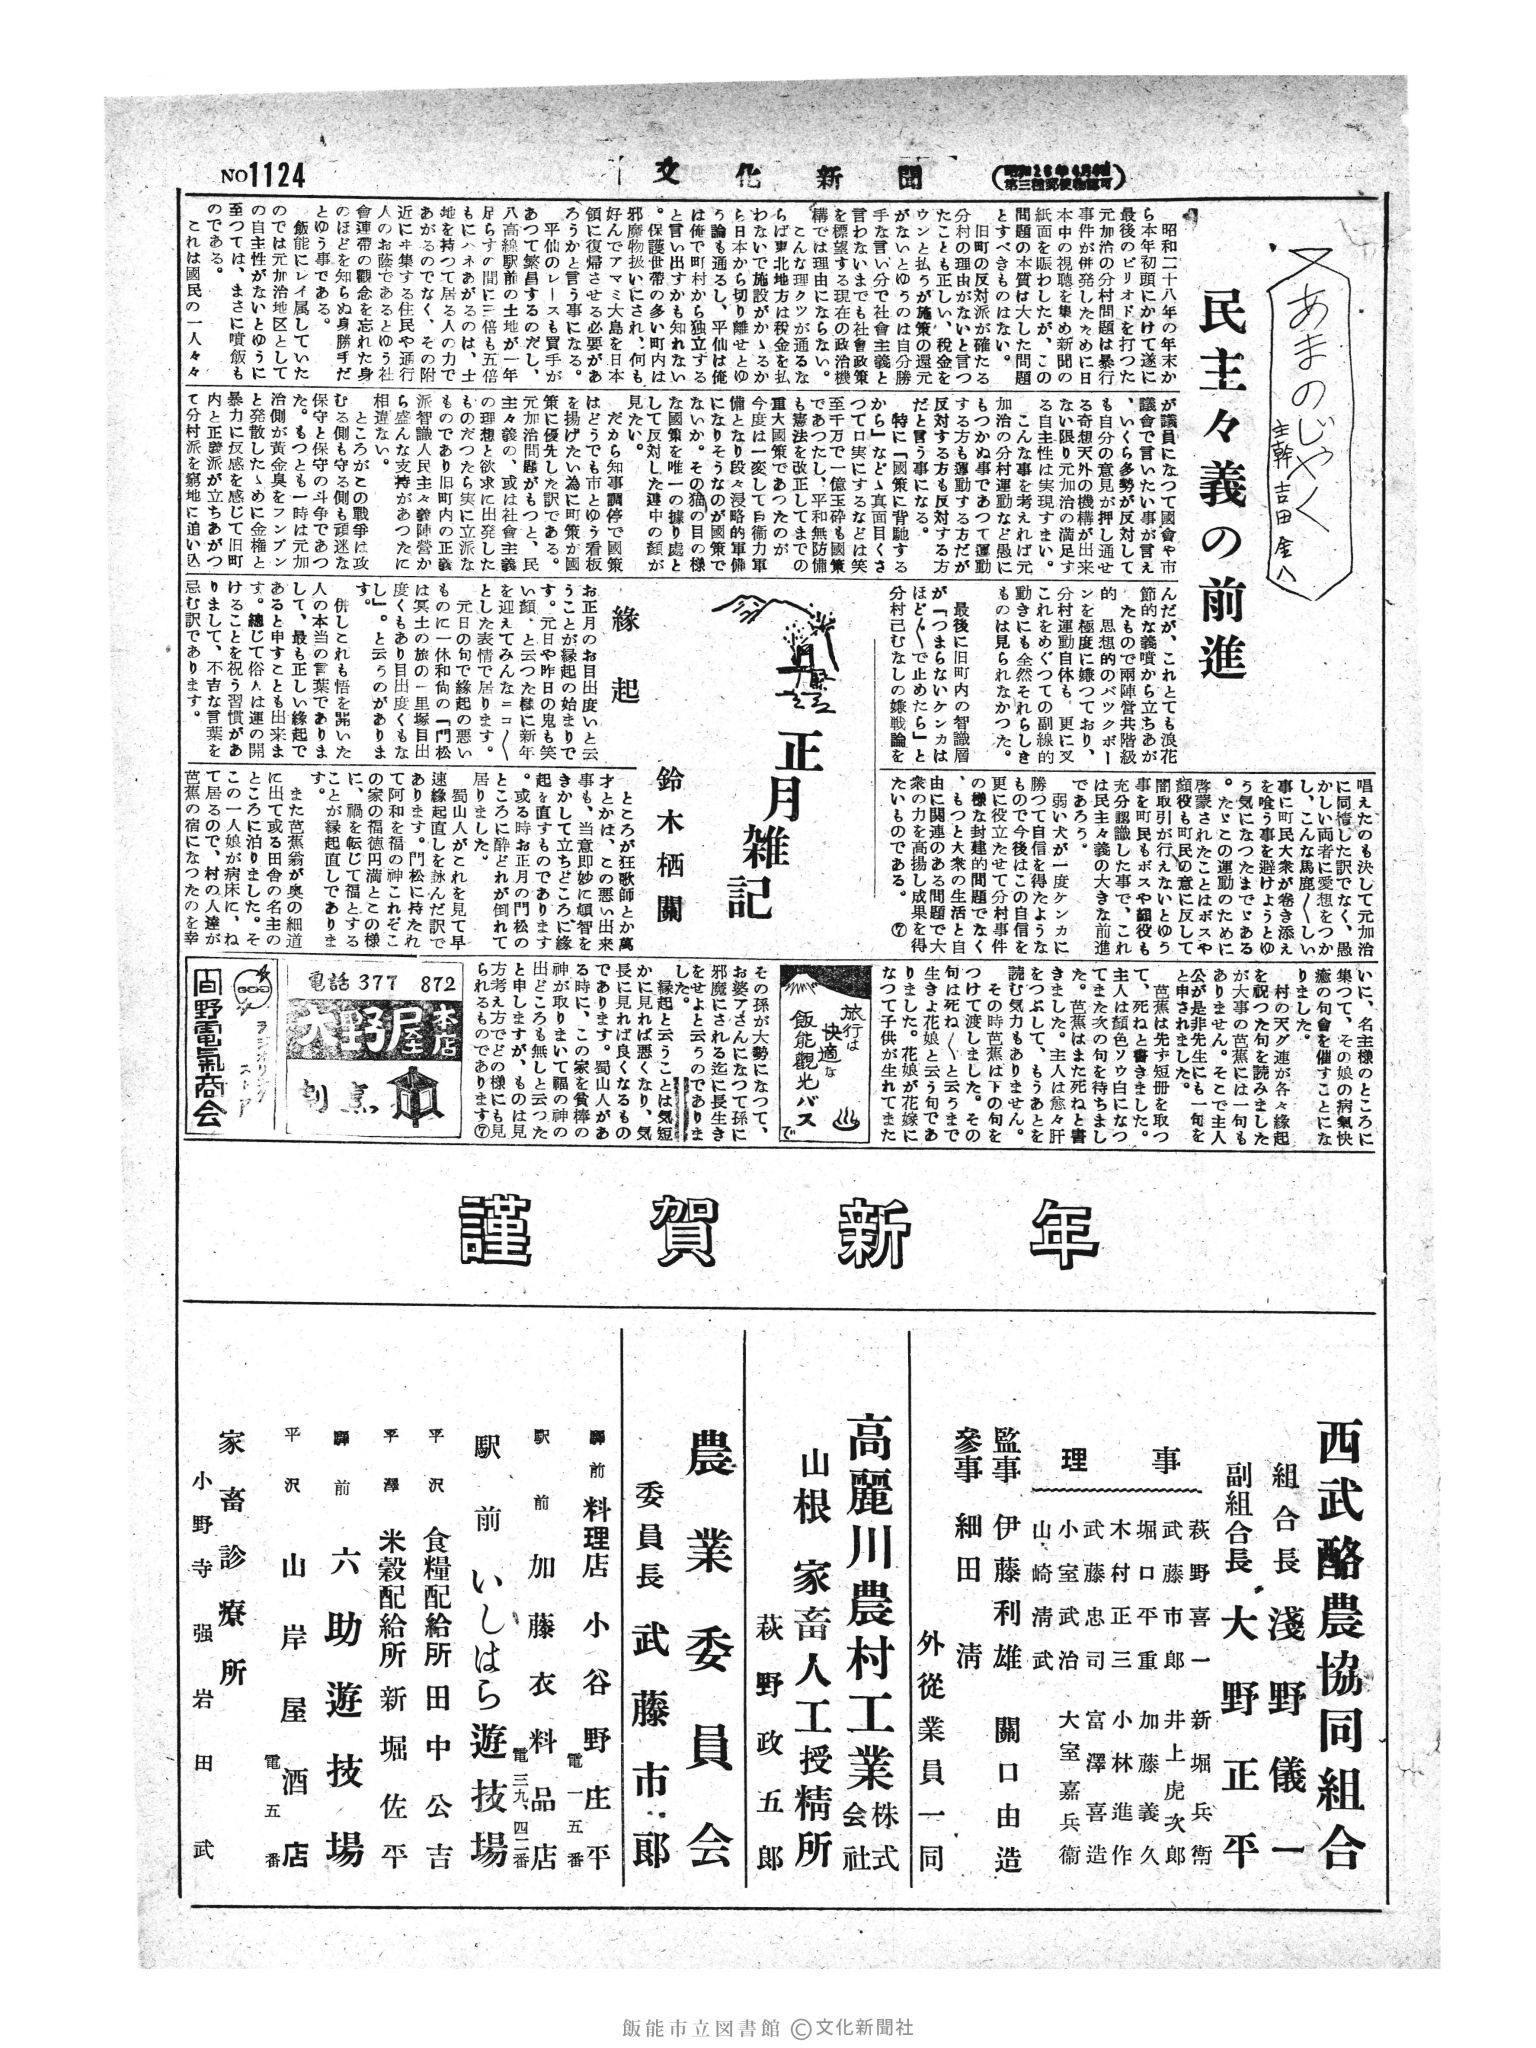 NO1124
文化新聞
(昭和26年4月4日
第三種郵便物認可)
又あまのじゃく
主幹 吉田金八
民主々義の前進
昭和二十八年の年末か
ら本年初頭にかけて遂に
最後のピリオドを打つた
元加治の分村問題は暴行
事件が併発したために日
本中の視聴を集め新聞の
紙面を賑わしたが、この
問題の本質は大した問題
とすべきものはない。
旧町の反対派が確たる
分村の理由がないと言つ
たことも正しい、税金を
ウンと払うが施策の還元
がないとゆうのは自分勝
手な言い分で社会主義と
言わないまでも社會政策
を標望する現在の政治機
構では理由にならない。
こんな理クツが通るな
らば東北地方は税金を払
わないで施設がかゝるか
ら日本から切り離せとゆ
う論も通るし、平仙は俺
は俺で町村から独立する
と言い出すかも知れない
。保護世帯の多い町内は
邪魔物扱いにされ、何も
好んでアマミ大島を日本
領に復帰させる必要があ
ろうかと言う事になる。
平仙のレースも買手が
あつて繁昌するのだし、
八高線駅前の土地が一年
足らずの間に三倍も五倍
もにハネあがるのは、土
地を持つて居る人の力で
あがるのでなく、その附
近に来集する住民や通行
人のお蔭であるとゆう社
會連帯の觀念を忘れた身
のほどを知らぬ身勝手だ
とゆう事である。
飯能にレイ属していた
のでは元加治地区として
の自主性がないとゆうに
至つては、まさに噴飯も
のである。
これは國民の一人々々
が議員になつて國會や市
議會で言いたい事が言え
、いくら多勢が反対して
も自分の意見が押し通せ
る奇想天外の機構が出来
ない限り元加治の満足す
る自主性は実現すまい。
こんな事を考えれば元
加治の分村運動など愚に
もつかぬ事であつて運動
する方も運動する方だが
反対する方も反対する方
だと言う事になる。
特に「國策に背馳する
から」などゝ真面目くさ
つて口実にするなどは笑
至千万で一億玉砕も國策
であつたし、平和無防備
も憲法を改正してまでの
重大國策であつたのが
今度は一変して自衞力軍
備となり段々浸略的軍備
になりそうなのが國策で
ないか。その猫の目の様
な國策を唯一の據り處と
して反対した連中の顔が
見たい。
だから知事調停で國策
はどうでも市とゆう看板
を揚げたい為に町策が國
策に優先した訳である。
元加治問題がもつと、民
主々義の、或は社会主義
の理想と欲求に出発した
ものだつたら実に立派な
ものであり旧町内の正義
派智識人民主々義陣營か
ら盛んな支持があつたに
相違ない。
ところがこの戰爭は攻
むる側も守る側も頑迷な
保守と保守の斗争であつ
た。もつとも一時は元加
治側が黄金臭をフンプン
と発散したゝめに金權と
暴力に反感を感じて旧町
内と正義派が立ちあがつ
て分村派を窮地に追い込
んだが、これとても浪花
節的な義墳から立ちあが
たもので両陣営共階級
的 思想的のバツクボー
ンを極度に嫌つており、
分村運動自体も、更に又
これをめぐつての副線的
動きにも全然それらしき
ものは見られなかつた。
最後に旧町内の智識層
が「つまらないケンカは
ほど〳〵で止めたら」と
分村己むなしの嫌戦論を
唱えたのも決して元加治
に同情した訳でなく、愚
かしい両者に愛想をつか
し、こんな馬鹿〳〵しい
事に町民大衆が卷き添え
を喰う事を避けようとゆ
う気になつたまでゞある
。たゞこの運動のために
啓蒙されたことはボスや
顔役も町民の意に反して
闇取引が行えないとゆう
事を町民もボスや顔役も
充分認識した事で、これ
は民主々義の大きな前進
であろう。
弱い犬が一度ケンカに
勝つて自信を得たような
もので今後はこの自信を
更に役立たせて分村事件
の様な封建的問題でなく
、もつと大衆の生活と自
由に関連のある問題で大
衆の力を高揚し成果を得
たいものである。⑦
正月雑記
鈴木栖關
緣起
お正月のお目出度いと云
うことが縁起の始まりで
す。元日や昨日の鬼も笑
い顔、と云つた様に新年
を迎えてみんなニコ〳〵
とした表情で居ります。
元日の句で緣起の悪い
ものに一休和尚の「門松
は冥土の旅の一里塚目出
度くもあり目出度くもな
し」。と云うのがありま
す。
併しこれも悟を開いた
人の本当の言葉でありま
して、最も正しい緣起で
あると申すことも出来ま
す。總じて俗人は運の開
けることを祝う習慣があ
りまして、不吉な言葉を
忌む訳であります。
ところが狂歌師とか萬
才とかは、この悪い出来
事も、当意即妙に頓智を
きかして立ちどころに緣
起を直すものであります
。或る時お正月の門松の
ところに酔どれが倒れて
居りました。
蜀山人がこれを見て早
速緣起直しを詠んだ訳で
あります。門松に持たれ
て阿和を福の神これぞこ
の家の福徳円満とこの様
に、禍を転じて福とする
ことが縁起直しでありま
す。
また芭蕉翁が奥の細道
に出て或る田舎の名主の
ところに泊りました。そ
この一人娘が病床に、ね
て居るので、村の人達が
芭蕉の宿になつたのを幸
いに、名主様のところに
集つて、その娘の病氣快
癒の句會を催すことにな
りました。
村の天グ連が各々緣起
を祝つた句を読みました
が大事の芭蕉には一句も
ありません。そこで主人
公が是非先生にも一句を
と申されました。
芭蕉は先ず短册を取つ
て、死ねと書きました。
主人は顏色ソウ白になつ
てまた次の句を待ちまし
た。芭蕉はまた死ねと書
きました。主人は愈々肝
をつぶして、もうあとを
読む気力もありません。
その時芭蕉は下の句を
つけて渡しました。その
句は死ね〳〵と云うまで
生きよ花娘と云う句であ
りました。花娘が花嫁に
なつて子供が生れてまた
その孫が大勢になつて、
お婆アさんになつて孫に
邪魔にされる迄に長生き
をせよと云うのでありま
した。
緣起と云うことは気短
かに見れば悪くなり、気
長に見れば良くなるもの
であります。蜀山人があ
る時に、この家を貧棒の
神が取りまいて福の神の
出どころも無しと云つた
と申しますが、ものは見
方考え方でどの様にも見
られるものであります⑦
旅行は
快適な
飯能觀光バスで
電話 377 872
大野屋本店
間野電氣商会
謹賀新年
西武酪農協同組合
組合長 淺野儀一
副組合長 大野正平
理事
萩野喜一
武藤市郎
堀口平重
木村正三
武藤忠司
小室武治
山崎淸武
新堀兵衛
井上虎次郎
加藤義久
小林進作
富澤喜造
大室嘉兵衞
監事 伊藤利雄 關口由造
參事 細田淸
外従業員一同
高麗川農村工業株式会社
山根家畜人工授精所
萩野政五郎
農業委員会
委員長 武藤市郎
驛前 料理店 小谷野庄平
電一五番
駅前 加藤衣料品店
電三九、四二番
駅前 いしはら遊技場
平沢 食糧配給所 田中公吉
平澤 米穀配給所 新堀佐平
驛前 六助遊技場
平沢 山岸屋酒店
電五番
家畜診療所
小野寺强
岩田武
飯能市立図書館 Ⓒ文化新聞社